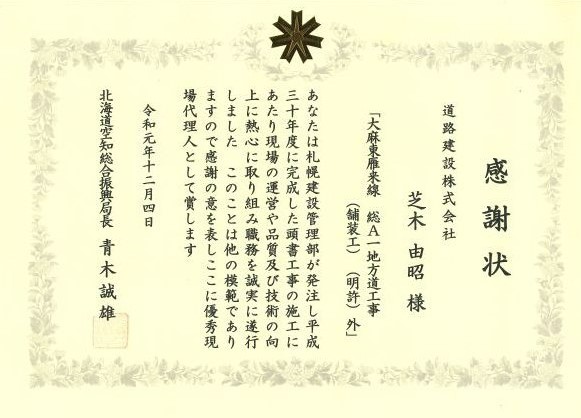 感謝状
道路建設株式会社
芝木由昭様
「大麻東雁来線 総A一地方道工事
(舗装工)(明許)外」
あなたは札幌建設管理部が発注し平成
三十年度に完成した頭書工事の施工に
あたり現場の運営や品質及び技術の向
上に熱心に取り組み職務を誠実に遂行
しました このことは他の模範であり
ますので感謝の意を表しここに優秀現
場代理人として賞します
令和元年十二月四日
北海道空知総合振興局長 青木誠雄